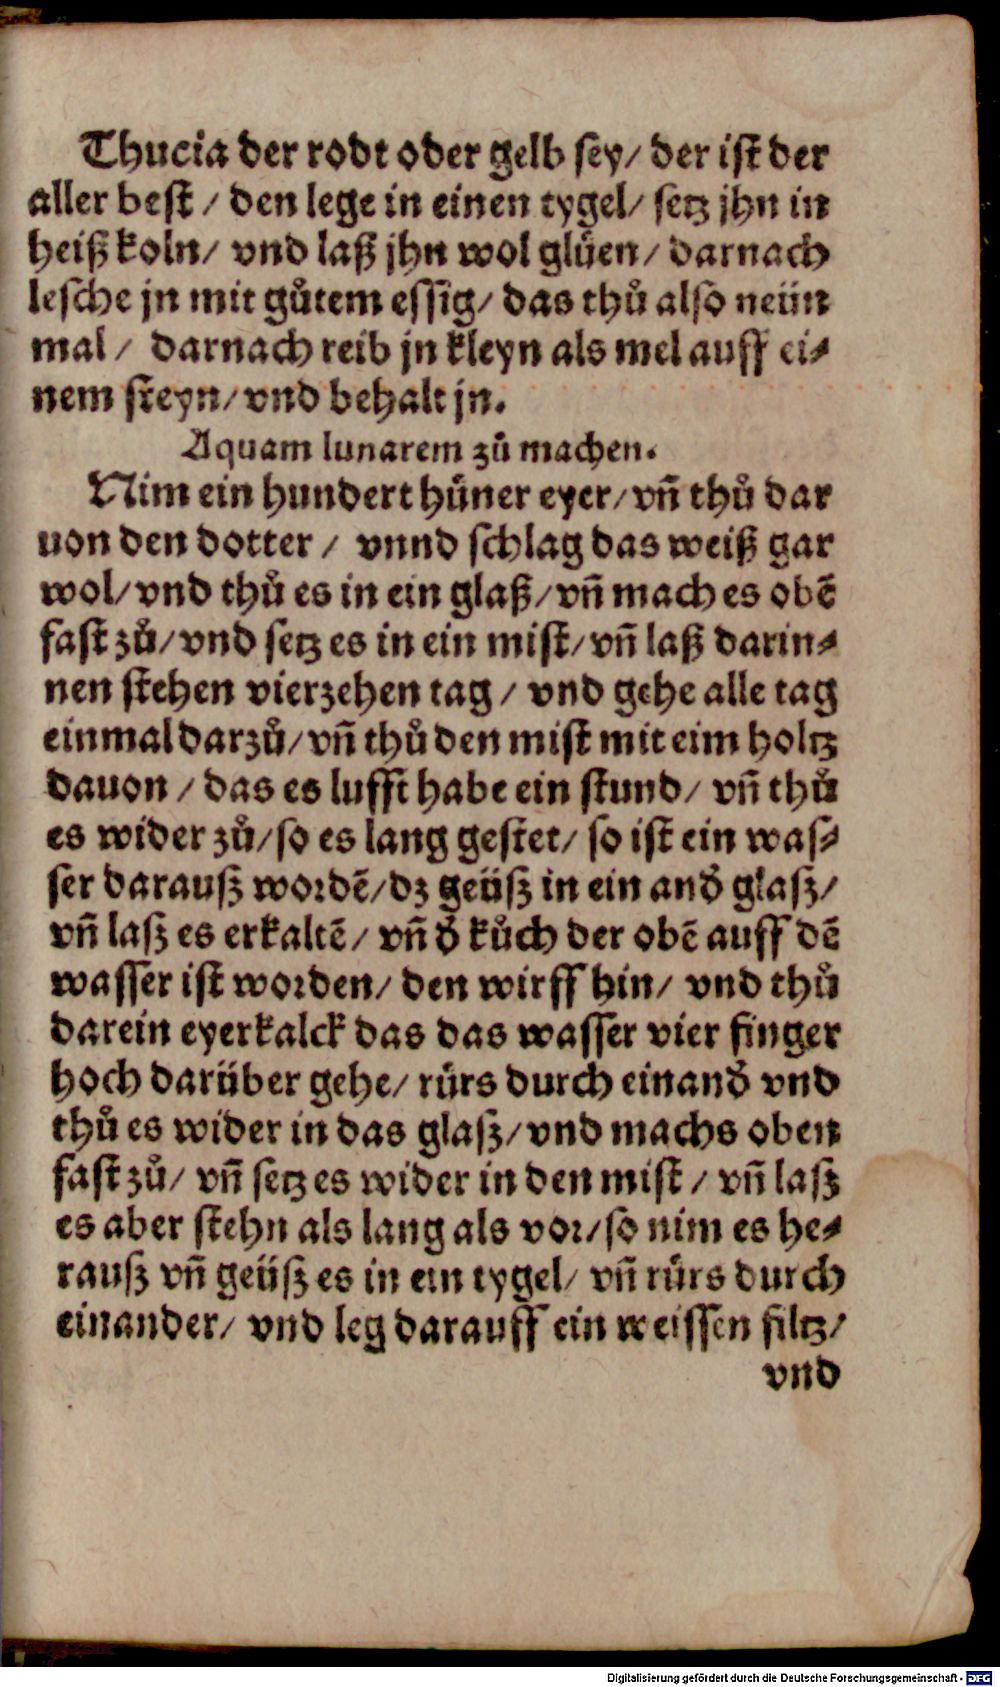 Thucia der rodt oder gelb sey/ der ist der
aller best / den lege in einen tygel/ setz jhn in
heiß koln/ vnd laß jhn wol glüen/ darnach
lesche jn mit gůtem essig/ das thů also neün
mal / darnach reib jn kleyn als mel auff ei⸗
nem steyn/ vnd behalt jn.
Aquam lunarem zů machen.
Nim ein hundert hüner eyer/ vñ thů dar
uon den dotter / vnnd schlag das weiß gar
wol/ vnd thů es in ein glaß/ vñ mach es obẽ
fast zů/ vnd setz es in ein mist/ vñ laß darin⸗
nen stehen vierzehen tag / vnd gehe alle tag
einmal darzů/ vñ thů den mist mit eim holtz
dauon / das es lufft habe ein stund/ vñ thů
es wider zů/ so es lang gestet/ so ist ein was⸗
ser darauß wordẽ/ dz geüß in ein and̕ glaß/
vñ laß es erkaltẽ / vñ d̕ kůch der obẽ auff dẽ
wasser ist worden/ den wirff hin/ vnd thů
darein eyerkalck das das wasser vier finger
hoch darüber gehe/ rürs durch einand̕ vnd
thů es wider in das glaß/ vnd machs oben
fast zů/ vñ setz es wider in den mist / vñ laß
es aber stehn als lang als vor/ so nim es he⸗
rauß vñ geüß es in ein tygel/ vñ rürs durch
einander/ vnd leg darauff ein weissen filtz/
vnd
Digitalisierung gefördert durch die Deutsche Forschungsgemeinschaft - DFG